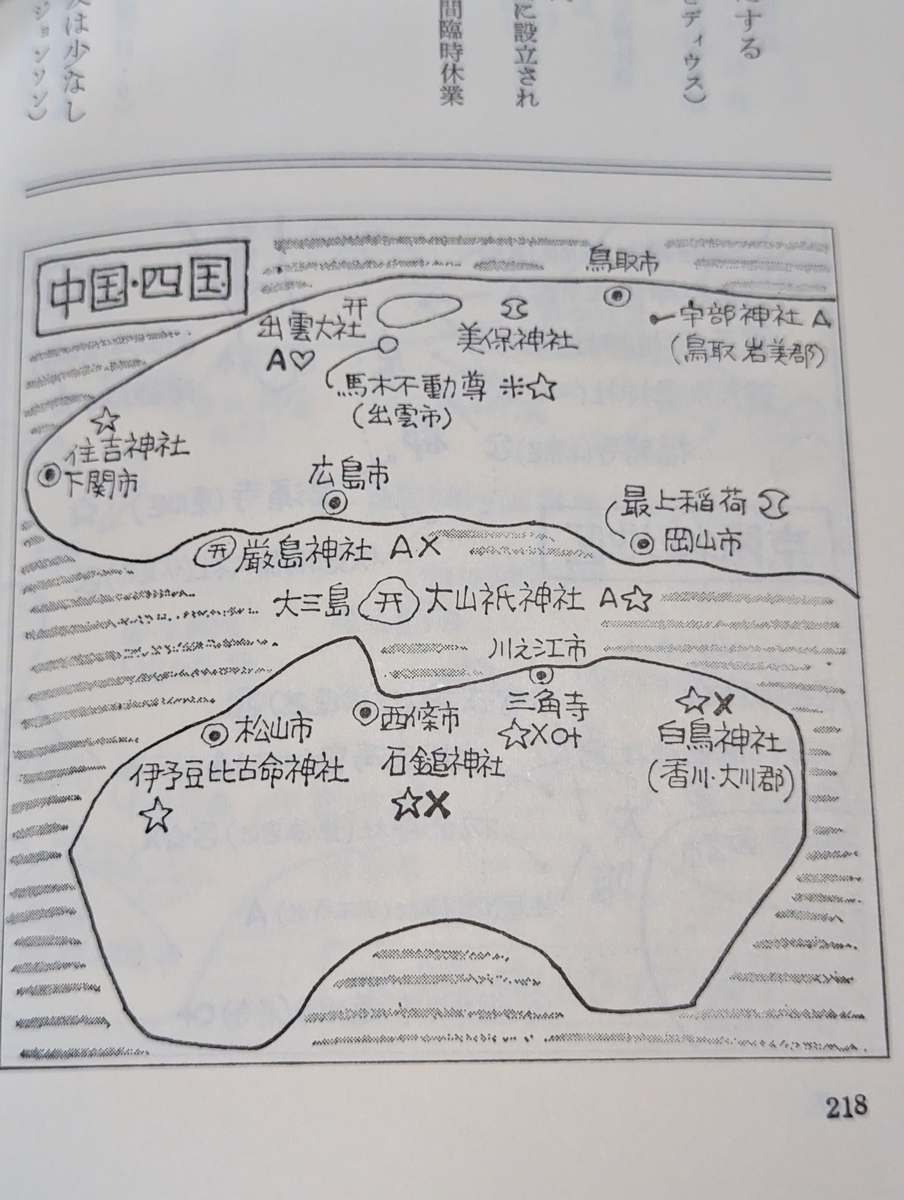 する
ディウス）
に設立され
間臨時休業
は少なし
ジョンソン）
中国・四国
鳥取市
宇部神社 A
(鳥取 岩美郡)
出雲大社
A♡
美保神社
馬木不動尊 米☆
(出雲市)
☆
住吉神社
下関市
広島市
最上稲荷
岡山市
厳島神社 A X
大三島 大山祇神社 A☆
川之江市
三角寺
☆X
☆X
白鳥神社
(香川・大川郡)
松山市
伊予豆比古命神社
☆
西條市
石鎚神社
☆X
218